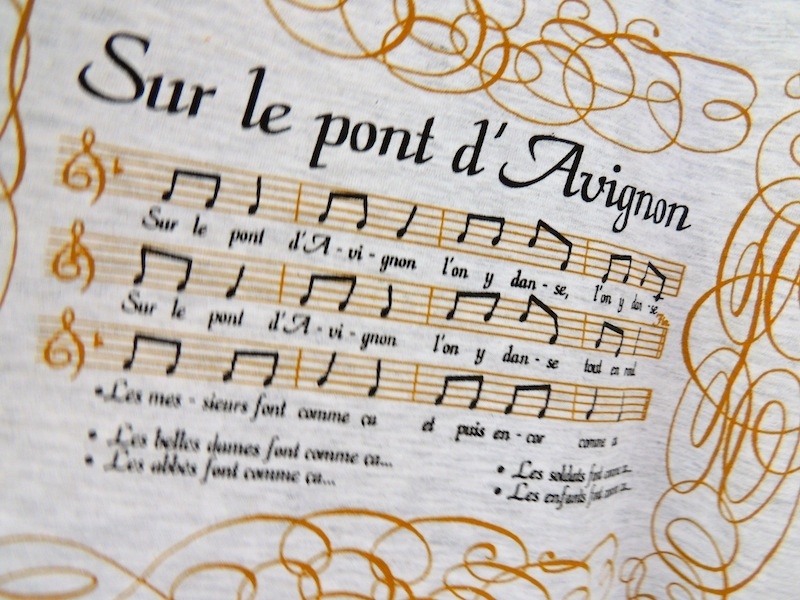 Sur le pont d'Avignon
Sur le pont d'A - vi - gnon l'on y dan - se, l'on y dan - se,
Sur le pont d'A - vi - gnon l'on y dan - se tout en
• Les mes - sieurs font comme ça et puis en - cor comme
• Les belles dames font comme ça...
• Les abbés font comme ça...
• Les soldats font
• Les enfants font